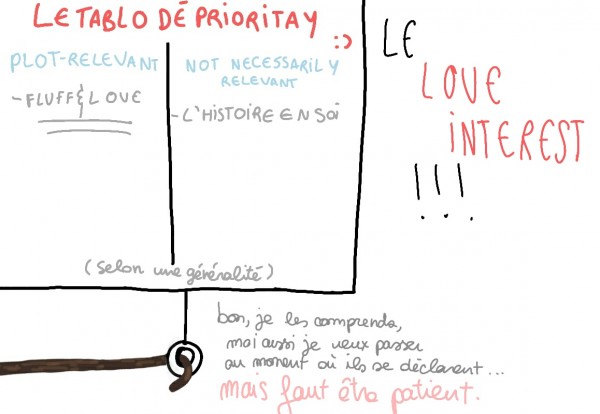 LE TABLO DÉ PRIORITAY
:)
PLOT-RELEVANT
- FLUFF & LOVE
NOT NECESSARILY
RELEVANT
- L'HISTOIRE EN SOI
(selon une générålité)
LE
LOVE
INTEREST
!!!
...
bon, je les comprends,
moi aussi je veux passer
au moment où ils se déclarent...
mais faut être patient.